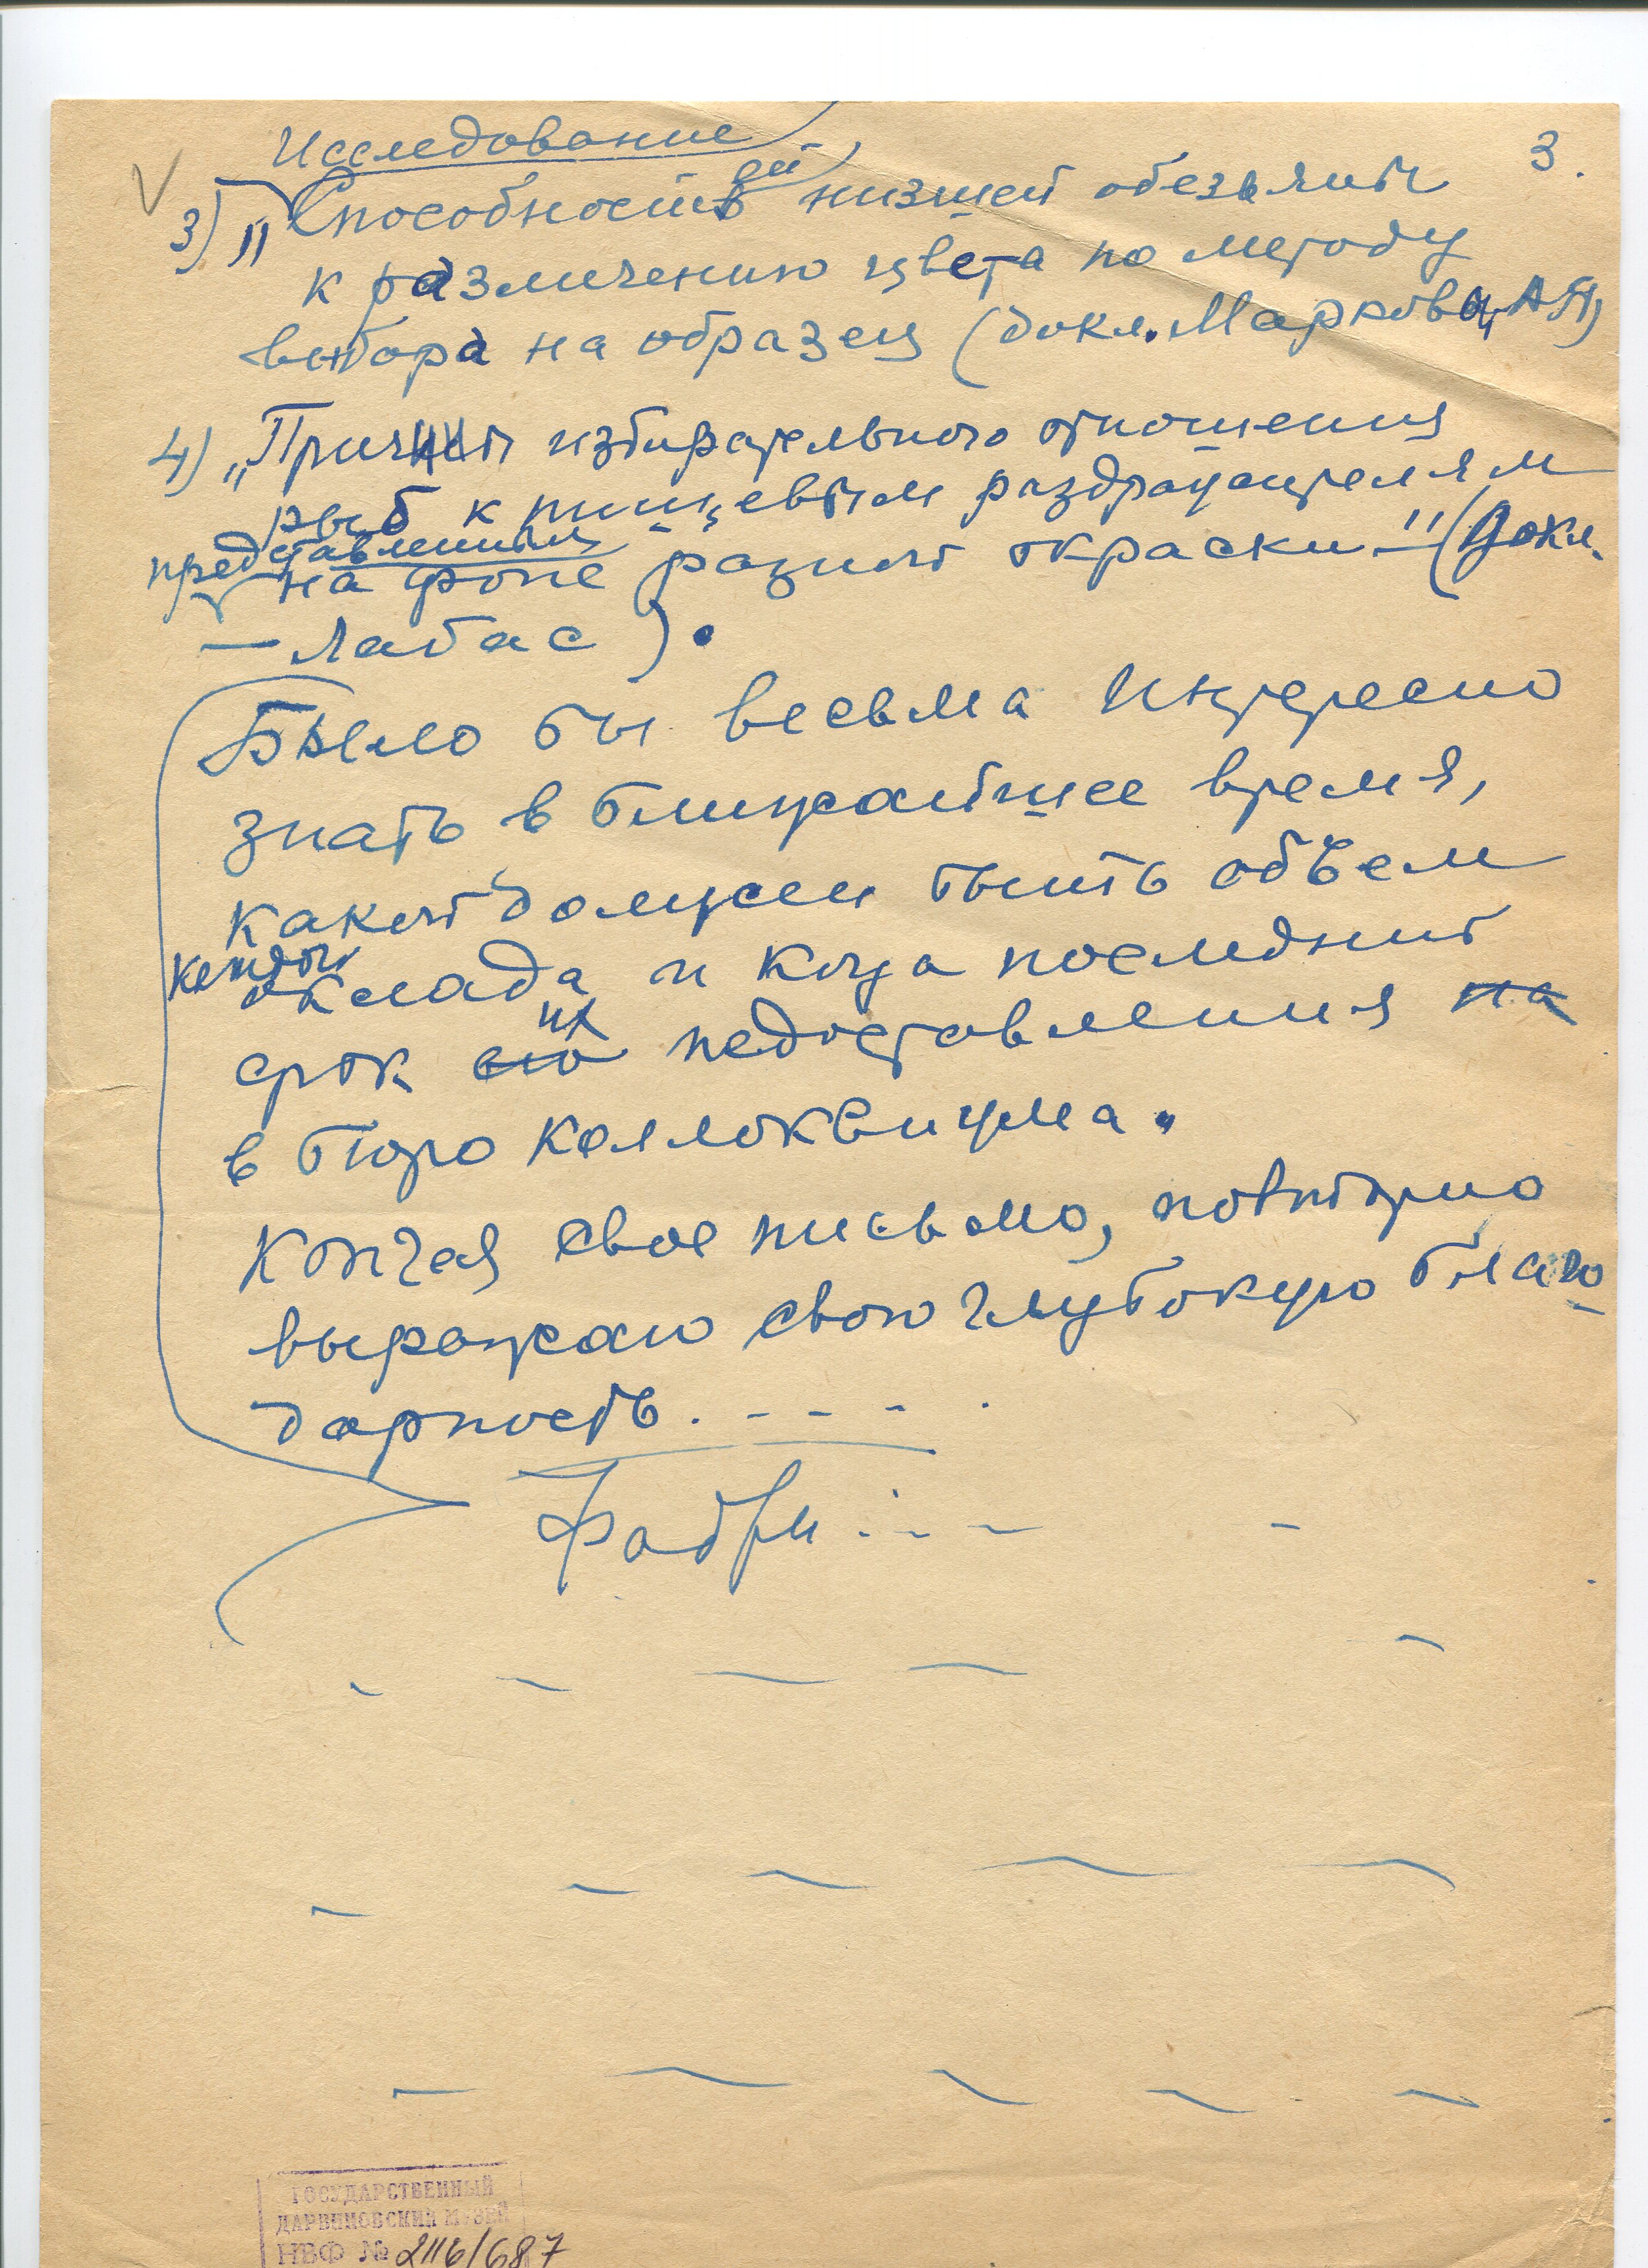 3.
Исследование
3) „Способностей низшей обезьяны
к различению цвета по методу
выбора на образец (докл. Маркова, АЯ)
4) „Причины избирательного отношения
рыб к пищевым раздражителям
представленным
на фоне разной окраски" (Докл.
— Лабас).
Было бы весьма интересно
знать в ближайшее время,
какой должен быть объем
доклада и когда последний
срок его их предоставления на
в бюро коллоквиума.
Кончая свое письмо, повторно
выражаю свою глубокую благо
дарность. - - - - .
Фабри
ГОСУДАРСТВЕННЫЙ
ДАРВИНОВСКИЙ МУЗЕЙ
НВФ № 2116/687